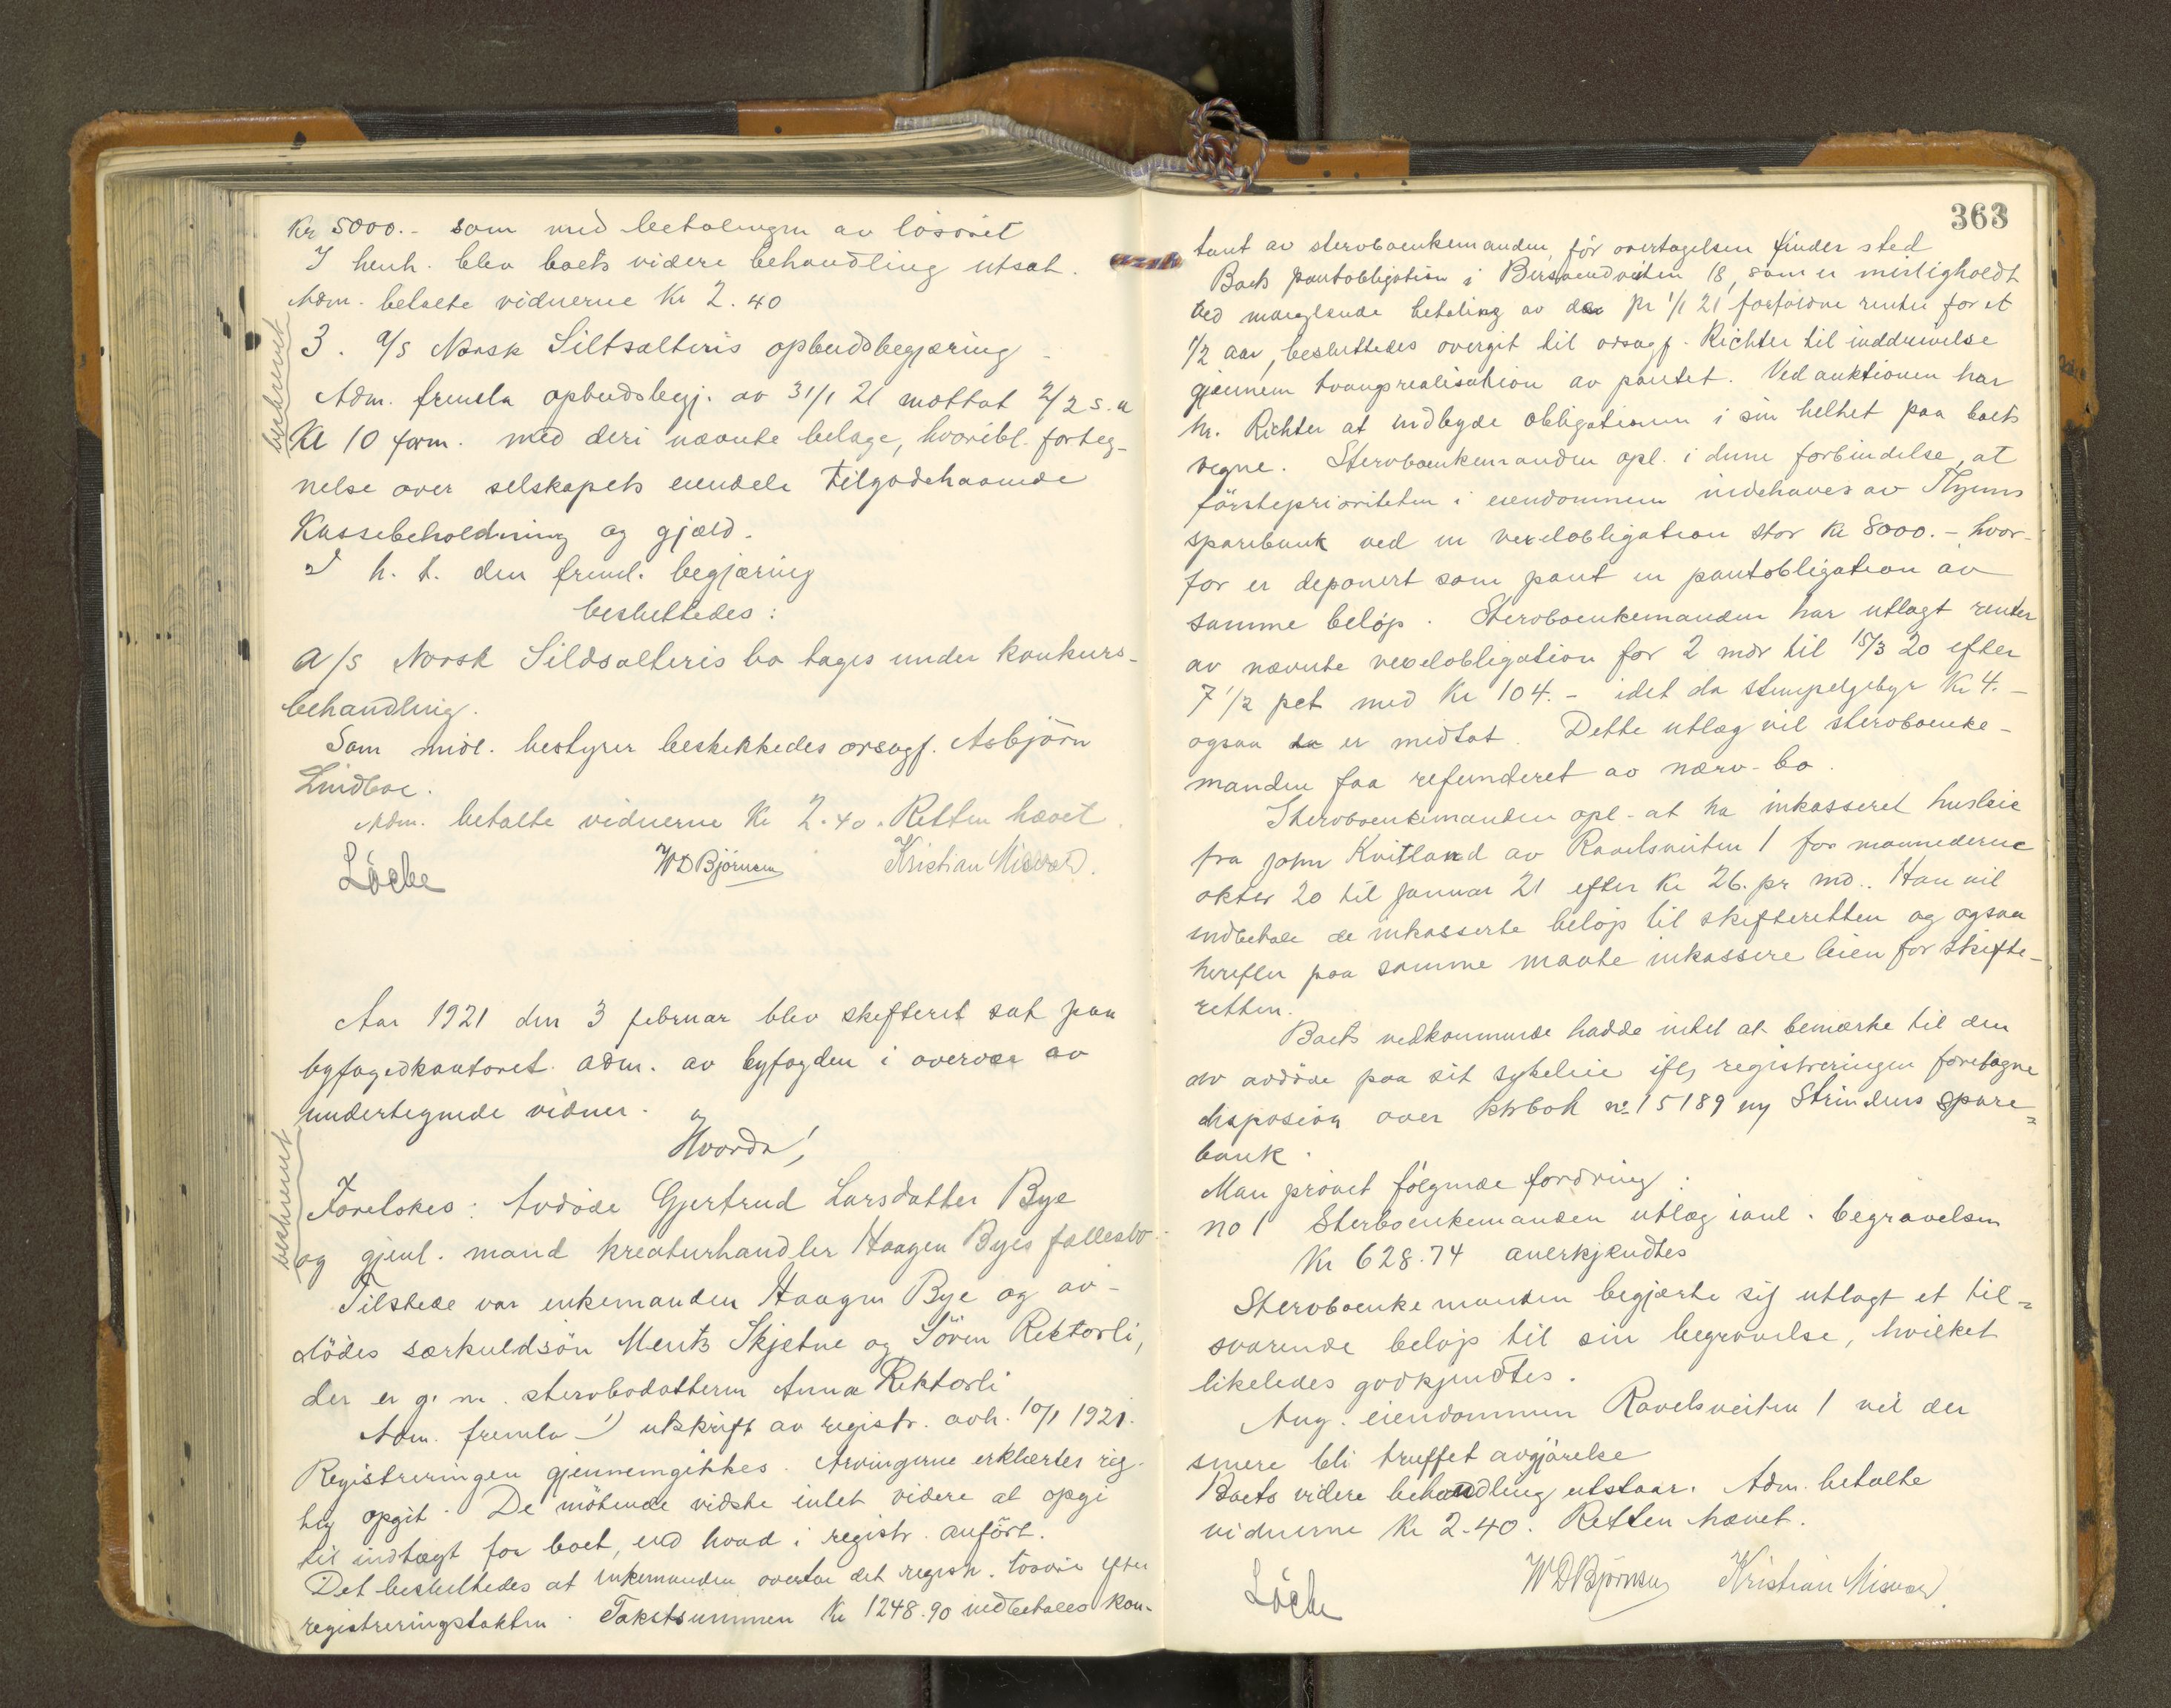 Kr 5000.- som med betalingen av løsøret
I henh. blev boets videre behandling utsat.
Adm. betalte vidnerne Kr 2.40
beskrevet
3. A/S Norsk Siltsalteris opbudsbegjæring
Adm. fremla opbudsbegj. av 31/1 21 mottat 2/2 s.a
Kl 10 form. med deri nævnte belage, hvoribl. forteg-
nelse over selskapets eiendele tilgodehavende
Kassebeholdning og gjæld.
I h. t. den freml. begjæring
besluttedes:
A/S Norsk Sildsalteris bo tages under konkurs-
behandling.
Som midl. bestyrer beskikkedes orsagf. Asbjörn
Lindboe.
Adm. betalte vidnerne Kr 2.40. Retten hævet.
Löcke WDBjörnsen Kristian Misvær.
Aar 1921 den 3 februar blev skifteret sat paa
byfogedkontoret adm. av byfogden i overvær av
undertegnede vidner.
Hvorda!
beskrevet
Foretokes: Avdöde Gjertrud Larsdatter Bye
og gjenl. mand kreaturhandler Haagen Byes fællesbo.
Tilstede var enkemanden Haagen Bye og av-
dödes særkuldsön Mentz Skjetne og Sören Rektorli,
der er g. m. stervbodatteren Anna Rektorli
Adm. fremla 1) utskrift av registr. avh. 10/1 1921.
Registreringen gjennemgikkes. Arvingerne erklærtes rig-
tig opgit. De mötende vidste intet videre at opgi
til indtægt for boet, end hvad i registr. anfört.
Det besluttedes at enkemanden overtar det registr. lösöre efter
registreringstaksten. Takstsummen Kr 1248.90 indbetales kon-
363
tant av stervboenkemanden, før overtagelsen finder sted
Boets pantobligation i 18, som er misligholdt
ved manglende betaling av den pr 1/1 21 forfaldne renter for et
1/2 aar, besluttedes overgit til orsagf. Richter til inddrivelse
gjennem tvangsrealisation av pantet. Ved auktionen har
hr. Richter at indbyde obligationen i sin helhet paa boets
vegne. Stervboenkemanden opl. i denne forbindelse, at
försteprioriteten i eiendommen indehaves av
sparebank ved en vexelobligation stor Kr 8000.- hvor-
for er deponert som pant en pantobligation av
samme beløp. Stervboenkemanden har utlagt renter
av nævnte vexelobligation for 2 mdr til 15/3 20 efter
7 1/2 pct med Kr 104.- idet da stempelgebyr Kr 4.-
ogsaa er medtat. Dette utlæg vil stervboenke-
manden faa refunderet av nærv. bo.
Stervboenkemanden opl. at ha inkasseret husleie
fra John Kvitland av Ravelsveiten 1 for maanederne
oktbr 20 til Januar 21 efter Kr 26. pr md.. Han vil
indbetale de inkasserte beløp til skifteretten og ogsaa
herefter paa samme maate inkassere leien for skifte-
retten.
Boets vedkommende hadde intet at bemerke til den
av avdöde paa sit sykeleie iflg registreringen foretagne
disposion over bok nº 15189 ny Strindens spare=
bank.
Man prövet følgende fordring:
no 1 Sterboenkemanden utlæg ianl. begravelsen
Kr 628.74 anerkjendtes
Stervboenkemanden begjærte sig utlagt et til=
svarende beløp til sin begravelse, hvilket
likeledes godkjendtes.
Ang. eiendommen Ravelsveiten 1 vil der
senere bli truffet avgjörelse
Boets videre behandling utstaar. Adm. betalte
vidnerne Kr 2.40. Retten hævet.
Löcke WDBjörnsen Kristian Misvær.